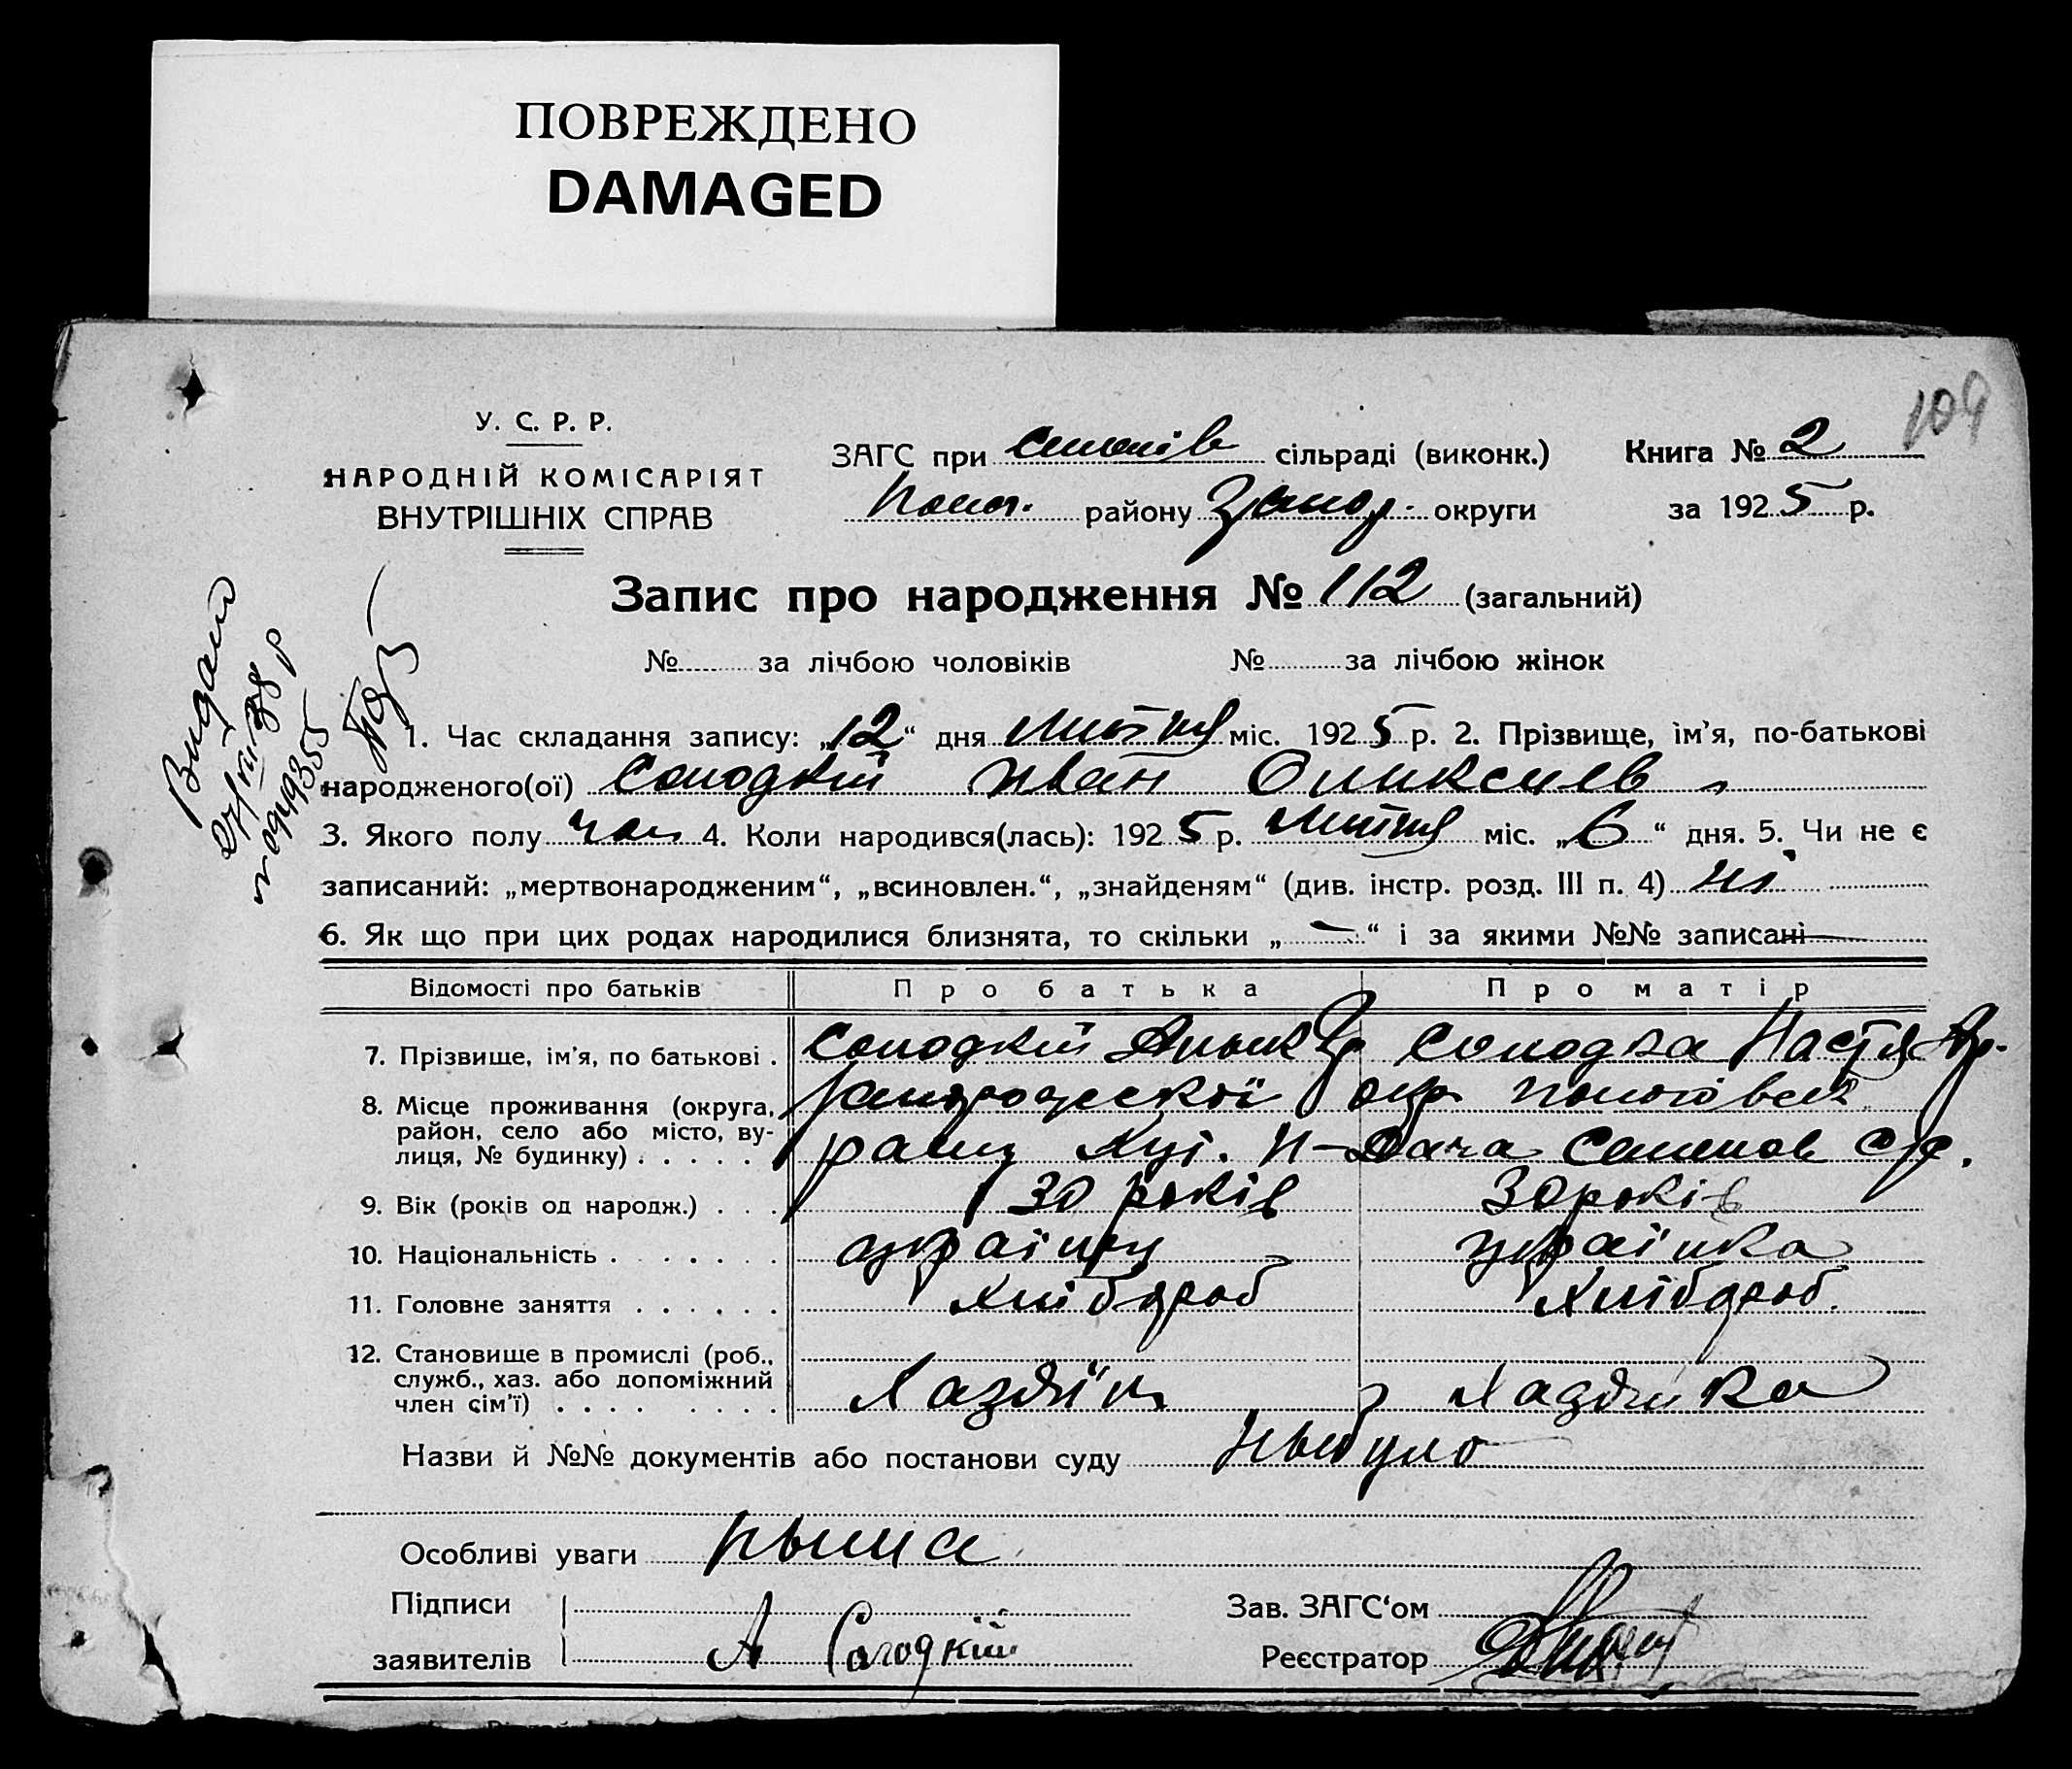 ПОВРЕЖДЕНО
DAMAGED
109
У. С. Р. Р.
НАРОДНІЙ КОМІСАРІЯТ
ВНУТРІШНІХ СПРАВ
ЗАГС при сільраді (виконк.) Книга № 2
Полог. району Запор. округи за 1925 р.
Запис про народження № 112 (загальний)
№ за лічбою чоловіків № за лічбою жінок
Видано
27/VII 38 р
1. Час складання запису: „12“ дня лютня міс. 1925 р. 2. Прізвище, ім'я, по-батькові
народженого(ої) Солодкій Иван Оликсиев
3. Якого полу чол 4. Коли народився(лась): 1925 р. лютня міс. „6“ дня. 5. Чи не є
записаний: „мертвонародженим“, „всиновлен.“, „знайденям“ (див. інстр. розд. III п. 4) ні
6. Як що при цих родах народилися близнята, то скільки „—“ і за якими №№ записані —
Відомості про батьків Про батька Про матір
7. Прізвище, ім'я, по батькові . Солодкій Солодка Настя
8. Місце проживання (округа, район, село або місто, вулиця, № будинку) . . . . . окр
Дача Семенов с/р.
9. Вік (років од народж.) . . . 30 років 30 років
10. Національність . . . . . . . українц українка
11. Головне заняття . . . . . . Хлібороб Хлібороб.
12. Становище в промислі (роб., служб., хаз. або допоміжний член сім'ї) . . . . . . . . Хазяїн Хазяйка
Назви й №№ документів або постанови суду Ныбуло
Особливі уваги Ныма
Підписи Зав. ЗАГС'ом
заявителів А Солодкій Реєстратор